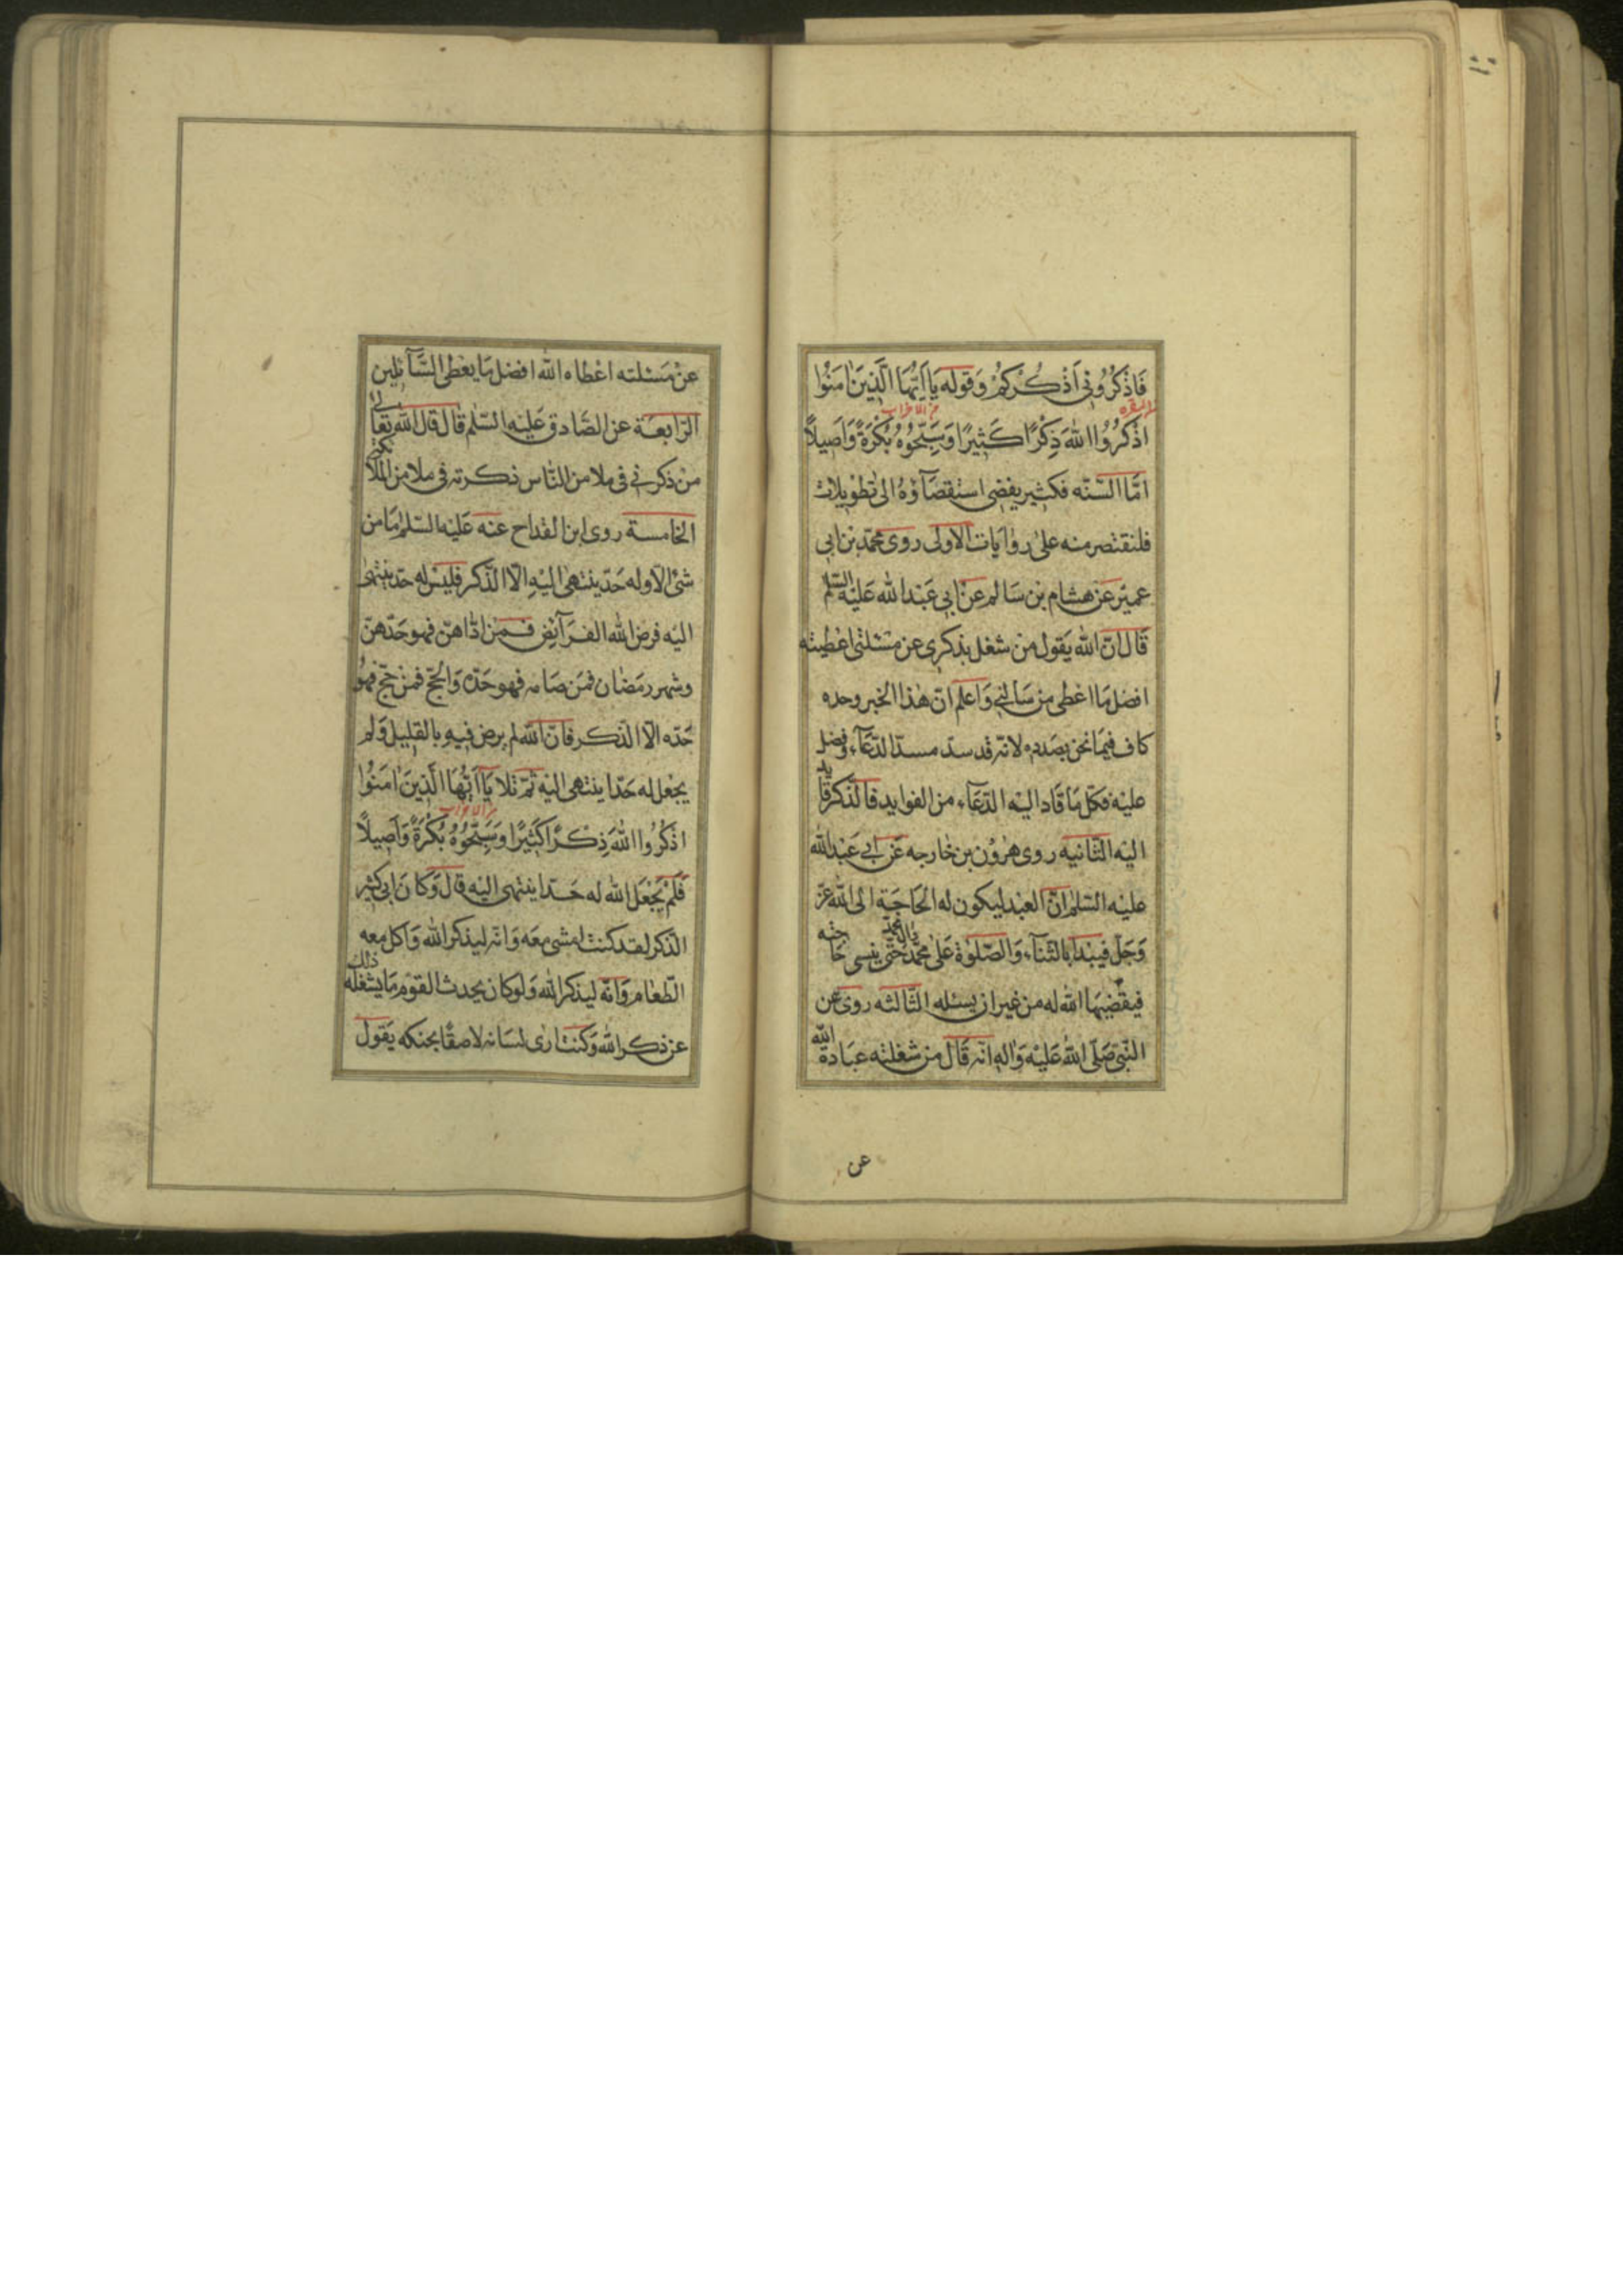 فَاذْكُرُونِي اَذْكُرْكُمْ وَقوله يَا اَيُّهَا الَّذِينَ اٰمَنُوا
البقره
من الاحزاب
اذْكُرُوا اللهَ ذِكْرًا كَثِيرًا وَسَبِّحُوهُ بُكْرَةً وَاَصِيلاً
امّا السّنّه فكثير يفضى استقصآؤه الى تطويلات
فلنقتصر منه على روايات الاولى روى محمّد بن ابى
عمير عن هشام بن سالم عن ابى عبد الله عليه السّلم
قال انّ الله يقول من شغل بذكرى عن مسئلتى اعطيته
افضل ما اعطى من سالنى واعلم انّ هذا الخبر وحده
كاف فيما نحن بصدده لانّه قد سدّ مسدّ الدّعآء وفضل
عليه فكلّ ما قاد اليه الدّعآء من الفوايد فالذّكر قايد
اليه الثّانيه روى هرون بن خارجه عن ابى عبد الله
عليه السّلم انّ العبد ليكون له الحاجة الى الله عزّ
وجلّ فيبدا بالثّنآء والصّلوة على محمّد وال محمّد حتّى ينسى حاجته
فيقضيها الله له من غير ان يسئله الثّالثه روى عن
النّبىّ صلّى الله عليه واله انّه قال من شغلته عبادة الله
عن
عن مسئلته اعطاه الله افضل ما يعطى السّآئلين
الرّابعة عن الصّادق عليه السّلم قال قال الله تعالى
من ذكرنى فى ملا من النّاس ذكرته فى ملا من الملائكة
الخامسة روى ابن القداح عنه عليه السّلم ما من
شئ الّا وله حدّ ينتهى اليه الّا الذّكر فليس له حدّ ينتهى
اليه فرض الله الفرآئض فمن ادّاهنّ فهو حدّهنّ
وشهر رمضان فمن صامه فهو حدّه والحجّ فمن حجّ فهو
حدّه الّا الذّكر فانّ الله لم يرض فيه بالقليل ولم
يجعل له حدّا ينتهى اليه ثمّ تلا يَا اَيُّهَا الَّذِينَ اٰمَنُوا
من الاحزاب
اذْكُرُوا اللهَ ذِكْرًا كَثِيرًا وَسَبِّحُوهُ بُكْرَةً وَاَصِيلاً
فلم يجعل الله له حدّا ينتهى اليه قال وكان ابى كثير
الذّكر لقد كنت امشى معه وانّه ليذكر الله واكل معه
الطّعام وانّه ليذكر الله ولو كان يحدث القوم ما يشغله ذلك
عن ذكر الله وكنت ارى لسانه لاصقًا بحنكه يقول